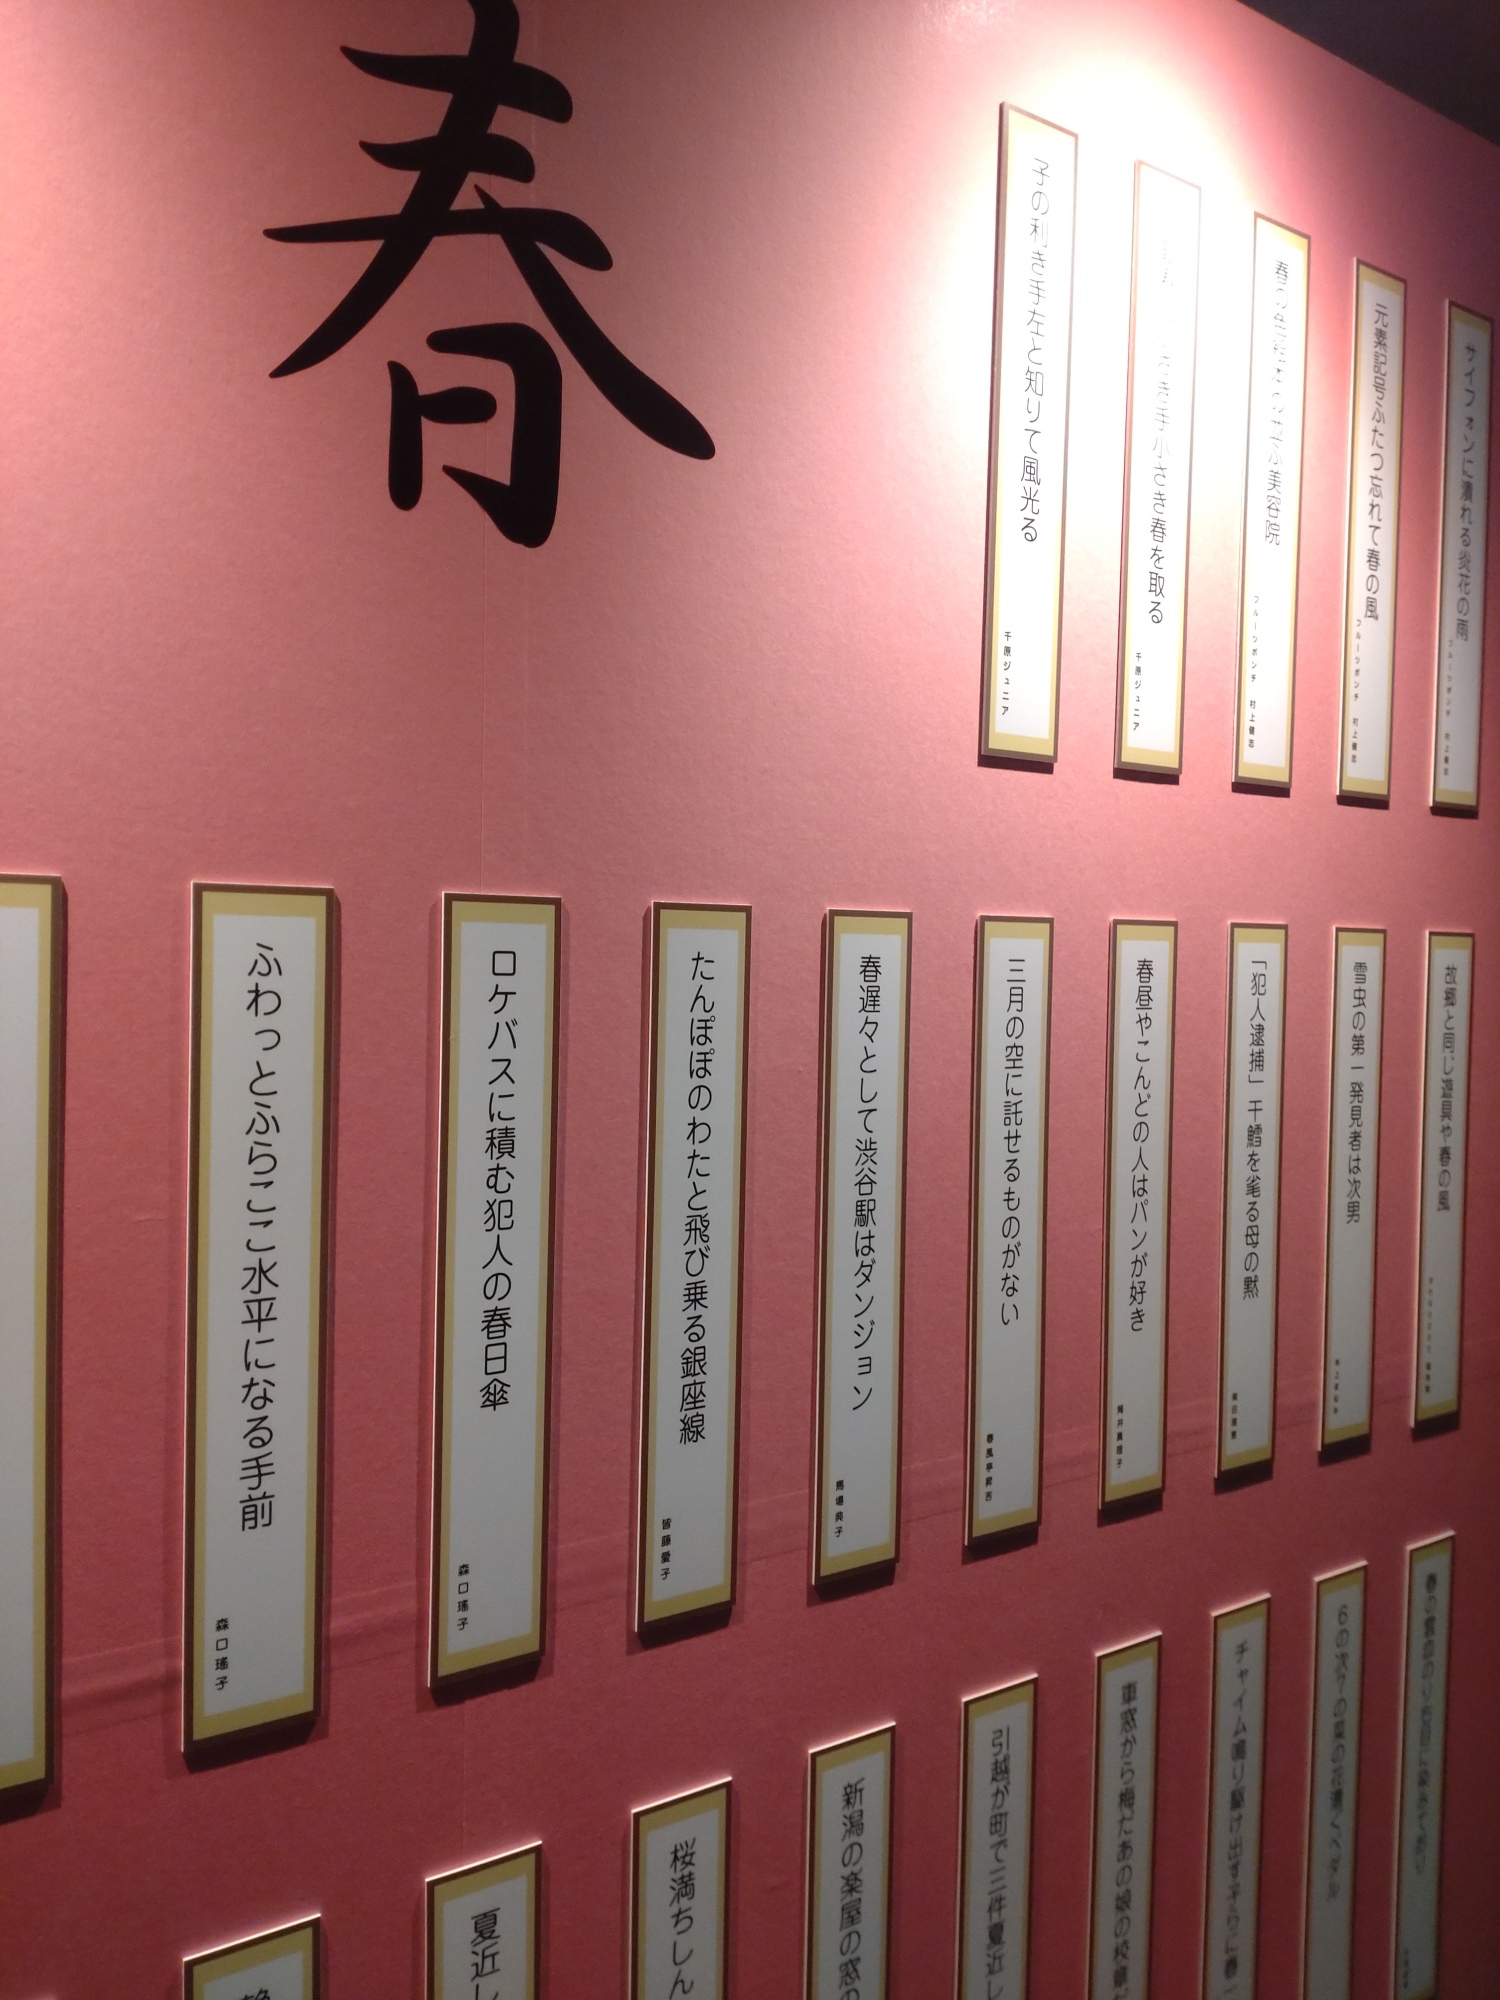 春
子の利き手左と知りて風光る
千原ジュニア
き手小さき春を取る
千原ジュニア
美容院
フルーツポンチ 村上健志
元素記号ふたつ忘れて春の風
フルーツポンチ 村上健志
サイフォンに潰れる炎花の雨
フルーツポンチ 村上健志
ふわっとふらここ水平になる手前
森口瑤子
ロケバスに積む犯人の春日傘
森口瑤子
たんぽぽのわたと飛び乗る銀座線
皆藤愛子
春遅々として渋谷駅はダンジョン
馬場典子
三月の空に託せるものがない
春風亭昇吉
春昼やこんどの人はパンが好き
筒井真理子
「犯人逮捕」干鱈を毟る母の黙
柴田理恵
雪虫の第一発見者は次男
故郷と同じ遊具や春の風
夏近し
桜満ちしん
新潟の楽屋の窓の
引越が町で三件夏近し
車窓から梅だあの娘の校章だ
チャイム鳴り駆け出す
6の次7の菜の花漕ぐペダル
春の